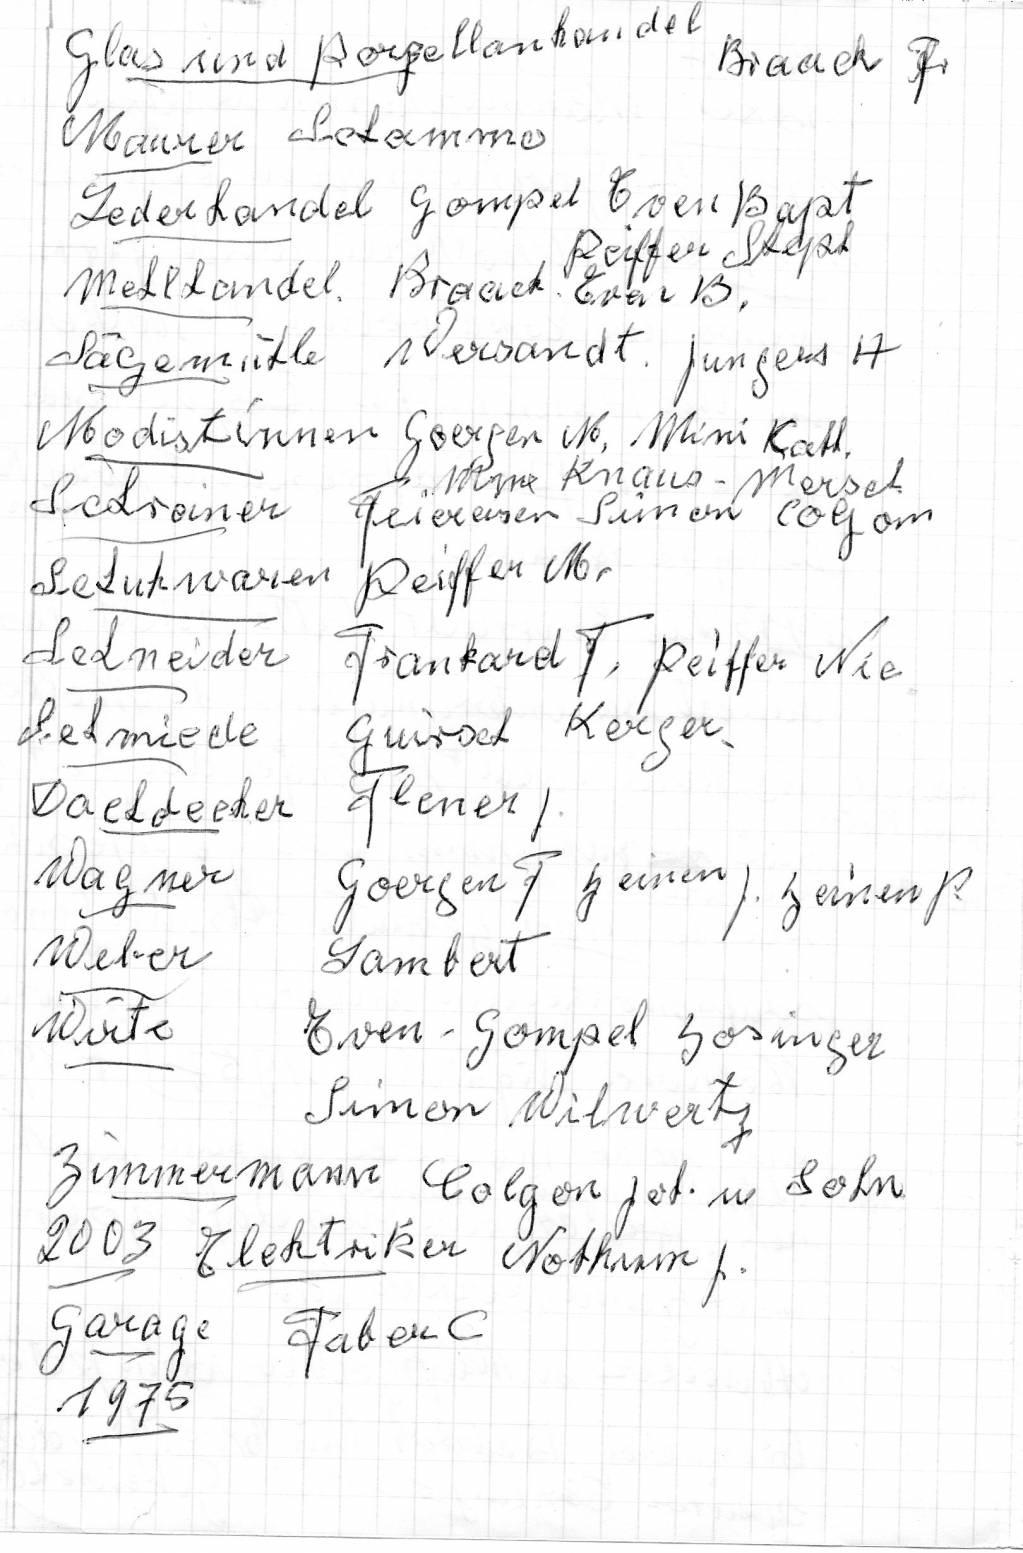 Glas und Porzellanhandel Braach Fr
Maurer Schammo
Lederhandel Gompel Even Bapt
Peiffer Steph
Mehlhandel. Braach. Even B.
Sägemühle Versandt. Jungers H
Modistinnen Goergen N. Mini Kath.
Mme Knaus-Mersch
Schreiner Feiereisen Simon Colgon
Schuhwaren Peiffer M.
Schneider Frankard F. Peiffer Nic
Schmiede Guirsch Kerger
Dachdecker Flener J.
Wagner Goergen F Heinen J. Heinen P.
Weber Lambert
Wirte Even - Gompel Hosinger
Simon Wilwertz
Zimmermann Colgon Joh. u Sohn
2003 Elektriker Nothum J.
Garage Faber C
1975